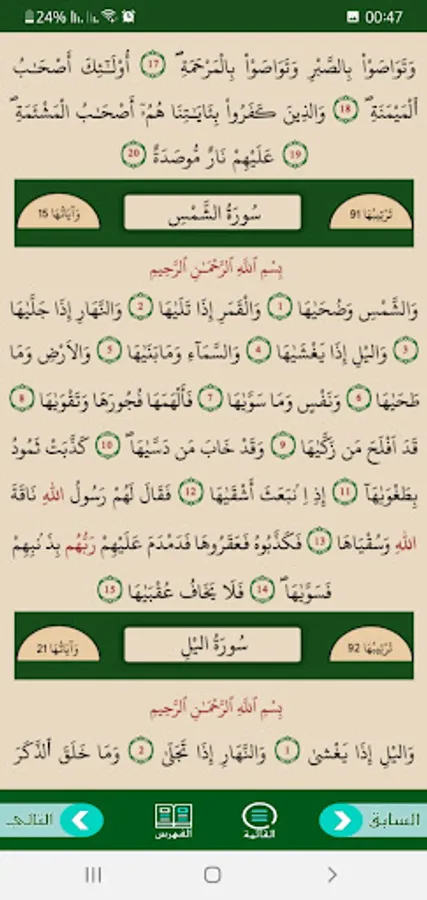 24% 00:47
وَتَوَاصَوْاْ بِالصَّبْرِ وَتَوَاصَوْاْ بِالْمَرْحَمَةِ ۖ 17 أُوْلَـٰٓئِكَ أَصْحَـٰبُ
اُلْمَيْمَنَةِ ۖ 18 وَالذِينَ كَفَرُواْ بِـَٔايَـٰتِنَا هُمُۥٓ أَصْحَـٰبُ الْمَشْـَٔمَةِ ۖ
19 عَلَيْهِمْ نَارٌ مُّوصَدَةٌ 20
تَرْتِيبُهَا 91 سُورَةُ الشَّمْسِ وَآيَاتُهَا 15
بِسْمِ اللَّهِ الرَّحْمَـٰنِ الرَّحِيمِ
وَالشَّمْسِ وَضُحَيٰهَا 1 وَالْقَمَرِ إِذَا تَلَيٰهَا 2 وَالنَّهَارِ إِذَا جَلَّيٰهَا
3 وَاليْلِ إِذَا يَغْشَيٰهَا 4 وَالسَّمَآءِ وَمَا بَنَيٰهَا 5 وَالَارْضِ وَمَا
طَحَيٰهَا 6 وَنَفْسٍ وَمَا سَوَّيٰهَا 7 فَأَلْهَمَهَا فُجُورَهَا وَتَقْوَيٰهَا 8
قَدَ اَفْلَحَ مَن زَكَّيٰهَا 9 وَقَدْ خَابَ مَن دَسَّيٰهَا ۖ 10 كَذَّبَتْ ثَمُودُ
بِطَغْوَيٰهَآ 11 إِذِ اِنۢبَعَثَ أَشْقَيٰهَا 12 فَقَالَ لَهُمْ رَسُولُ اللَّهِ نَاقَةَ
اللَّهِ وَسُقْيَاهَا 13 فَكَذَّبُوهُ فَعَقَرُوهَا فَدَمْدَمَ عَلَيْهِمْ رَبُّهُم بِذَنۢبِهِمْ
فَسَوَّيٰهَا ۖ 14 فَلَا يَخَافُ عُقْبَيٰهَا 15
تَرْتِيبُهَا 92 سُورَةُ اليْلِ وَآيَاتُهَا 21
بِسْمِ اللَّهِ الرَّحْمَـٰنِ الرَّحِيمِ
وَاليْلِ إِذَا يَغْشىٰ 1 وَالنَّهَارِ إِذَا تَجَلّىٰ 2 وَمَا خَلَقَ اَلذَّكَرَ
السابق القائمة الفهرس التالي